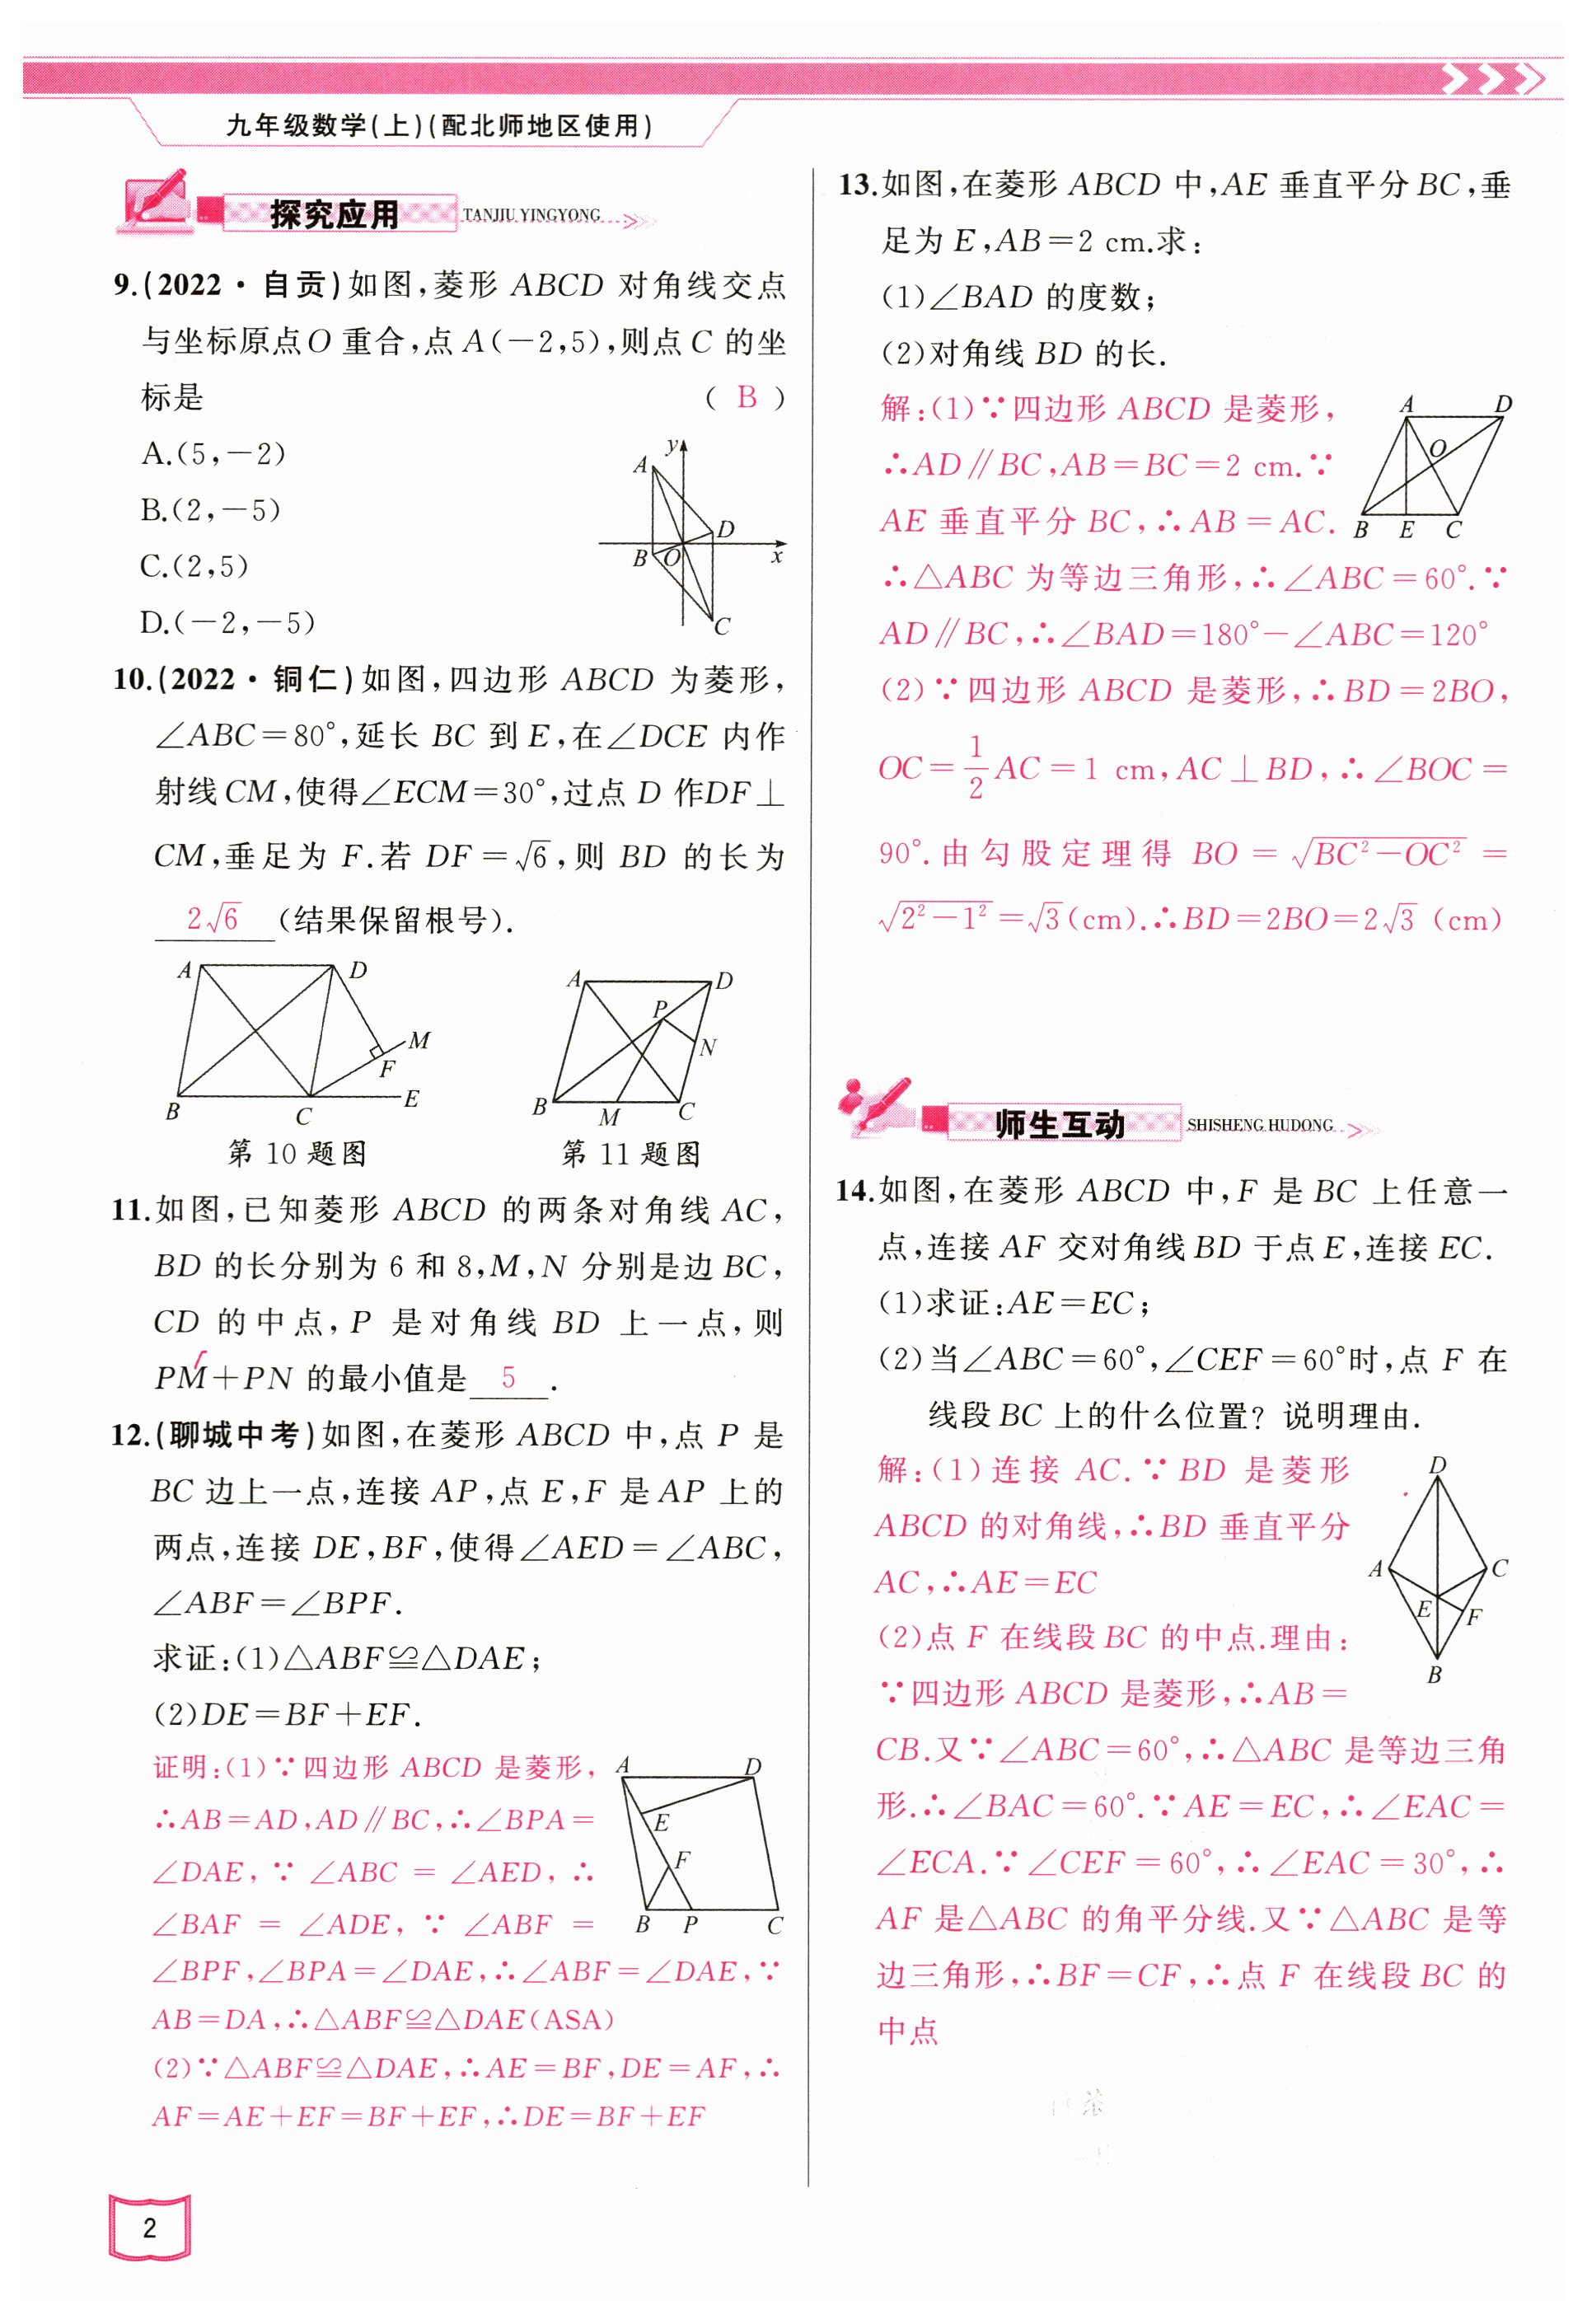 九年级数学(上)(配北师地区使用)
探究应用 TANJIU YINGYONG
9.(2022·自贡)如图,菱形 ABCD 对角线交点
与坐标原点O 重合,点 A(-2,5),则点 C 的坐
标是 ( B )
A.(5,-2)
B.(2,-5)
C.(2,5)
D.(-2,-5)
y
A
D
B
O
x
C
10.(2022·铜仁)如图,四边形 ABCD 为菱形,
∠ABC=80°,延长 BC 到 E,在∠DCE 内作
射线 CM,使得∠ECM=30°,过点 D 作DF⊥
CM,垂足为 F.若 DF=√6,则 BD 的长为
2√6 (结果保留根号).
A D
M
F
B C E
第 10 题图
A D
P
N
B M C
第 11 题图
11.如图,已知菱形 ABCD 的两条对角线 AC,
BD 的长分别为 6 和 8,M,N 分别是边 BC,
CD 的中点,P 是对角线 BD 上一点,则
PM+PN 的最小值是 5 .
12.(聊城中考)如图,在菱形 ABCD 中,点 P 是
BC 边上一点,连接 AP,点 E,F 是 AP 上的
两点,连接 DE,BF,使得∠AED=∠ABC,
∠ABF=∠BPF.
求证:(1)△ABF≌△DAE;
(2)DE=BF+EF.
证明:(1)∵四边形 ABCD 是菱形,
∴AB=AD,AD∥BC,∴∠BPA=
∠DAE,∵∠ABC=∠AED,∴
∠BAF=∠ADE,∵∠ABF=
∠BPF,∠BPA=∠DAE,∴∠ABF=∠DAE,∵
AB=DA,∴△ABF≌△DAE(ASA)
(2)∵△ABF≌△DAE,∴AE=BF,DE=AF,∴
AF=AE+EF=BF+EF,∴DE=BF+EF
A D
E
F
B P C
2
13.如图,在菱形 ABCD 中,AE 垂直平分 BC,垂
足为 E,AB=2 cm.求:
(1)∠BAD 的度数;
(2)对角线 BD 的长.
解:(1)∵四边形 ABCD 是菱形,
∴AD∥BC,AB=BC=2 cm.∵
AE 垂直平分 BC,∴AB=AC.
∴△ABC 为等边三角形,∴∠ABC=60°.∵
AD∥BC,∴∠BAD=180°-∠ABC=120°
(2)∵四边形 ABCD 是菱形,∴BD=2BO,
OC=1/2 AC=1 cm,AC⊥BD,∴∠BOC=
90°.由勾股定理得 BO=√(BC²-OC²)=
√(2²-1²)=√3(cm).∴BD=2BO=2√3 (cm)
A D
O
B E C
师生互动 SHISHENG HUDONG
14.如图,在菱形 ABCD 中,F 是 BC 上任意一
点,连接 AF 交对角线 BD 于点 E,连接 EC.
(1)求证:AE=EC;
(2)当∠ABC=60°,∠CEF=60°时,点 F 在
线段 BC 上的什么位置?说明理由.
解:(1)连接 AC.∵BD 是菱形
ABCD 的对角线,∴BD 垂直平分
AC,∴AE=EC
(2)点 F 在线段 BC 的中点.理由:
∵四边形 ABCD 是菱形,∴AB=
CB.又∵∠ABC=60°,∴△ABC 是等边三角
形.∴∠BAC=60°.∵AE=EC,∴∠EAC=
∠ECA.∵∠CEF=60°,∴∠EAC=30°,∴
AF 是△ABC 的角平分线.又∵△ABC 是等
边三角形,∴BF=CF,∴点 F 在线段 BC 的
中点
D
A C
E F
B